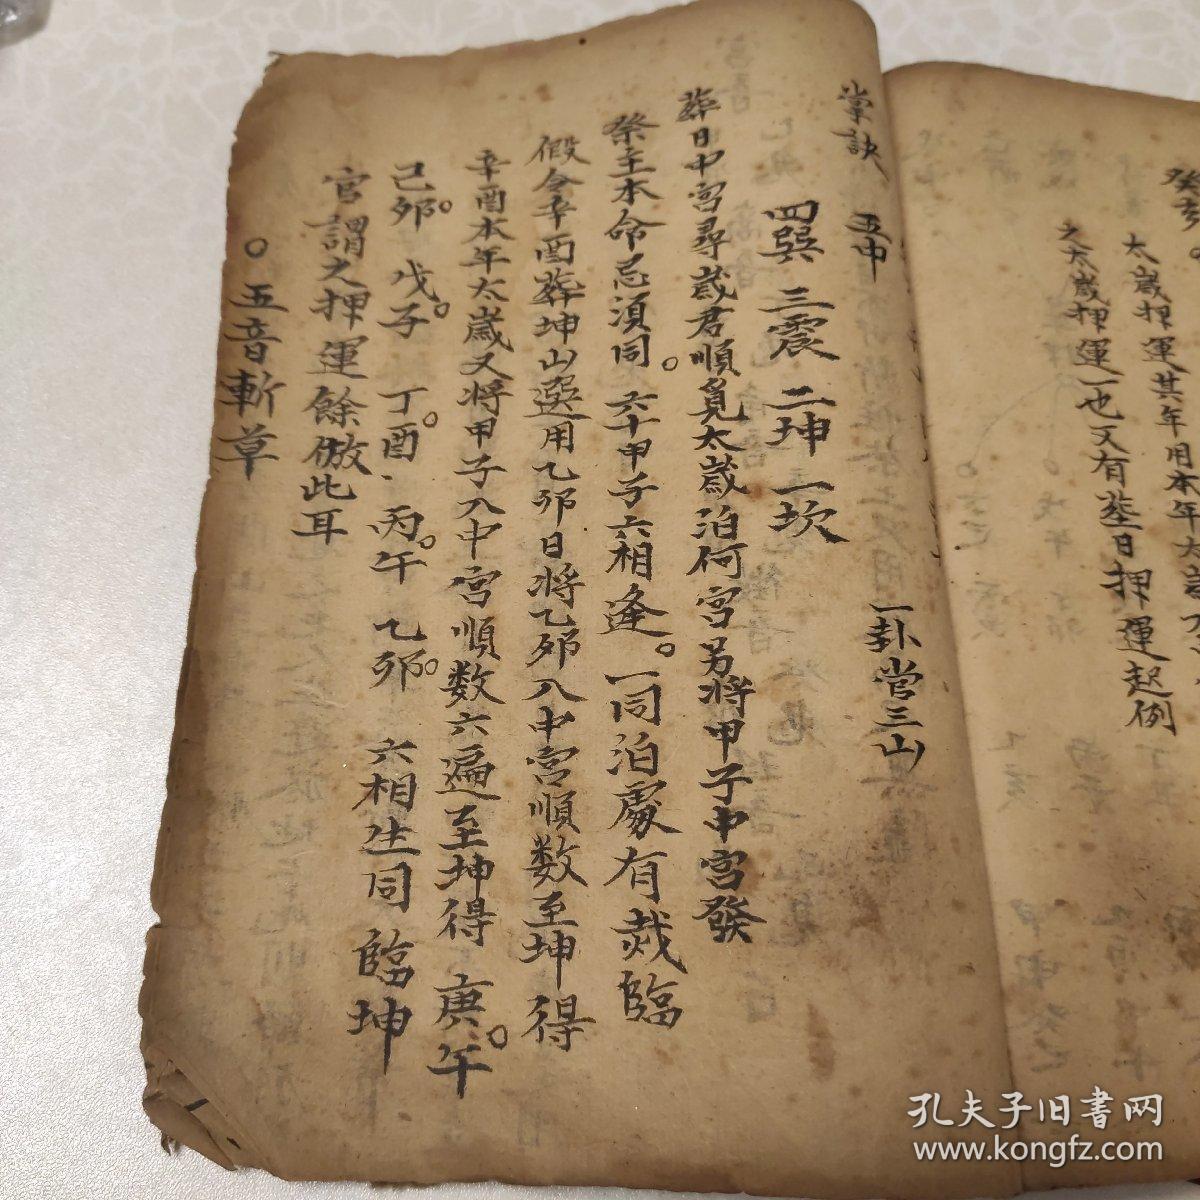 癸亥。
太歲押運其年用本年太歲
之太歲押運一也又有塟日押運起例
掌訣 五中 一卦管三山
四巽 三震 二坤 一坎
葬日中宮尋歲君順覓太歲泊何宮另將甲子中宮發
祭主本命忌須同。六十甲子六相逢。一同泊處有災臨
假令辛酉葬坤山選用乙卯日將乙卯入中宮順数至坤得
辛酉本年太歲又將甲子入中宮順数六遍至坤得庚午。
己卯。戊子。丁酉。丙午。乙卯。六相生同臨坤
宮謂之押運餘倣此耳
○五音斬草
孔夫子旧書网
www.kongfz.com